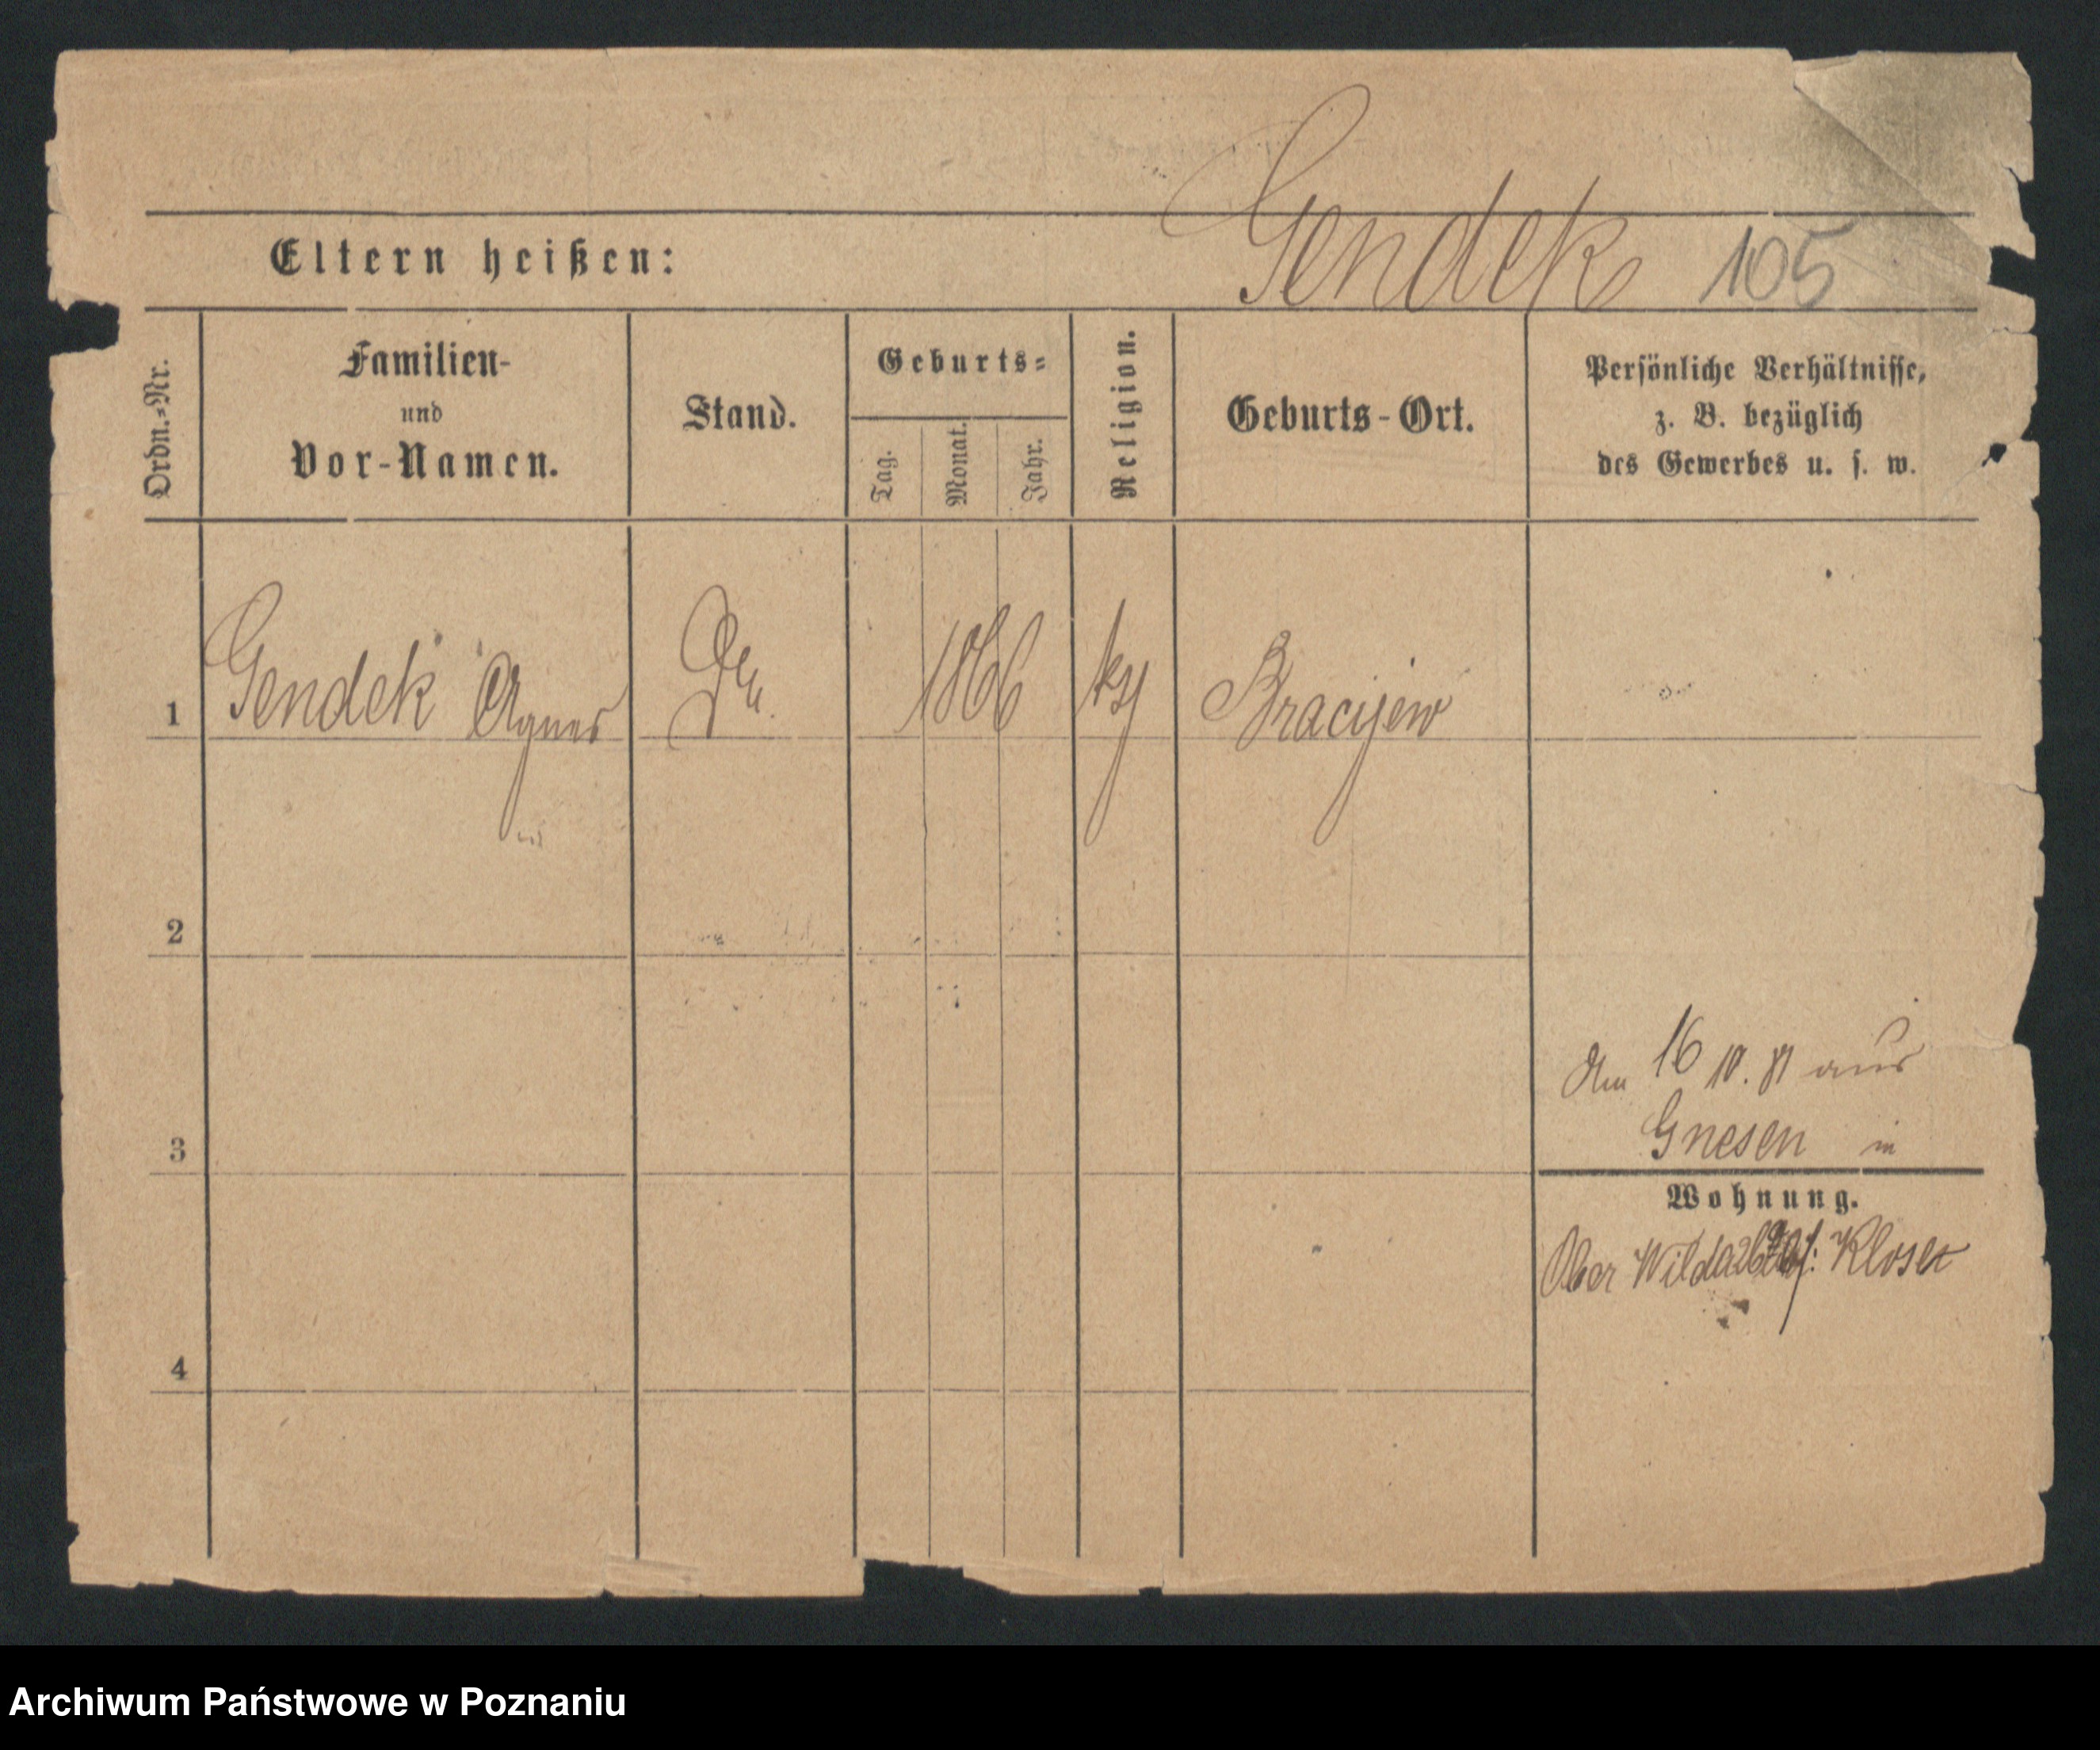 Gendek 105
Eltern heißen:
Ordn.=Nr.
Familien-
und
Vor-Namen.
Stand.
Geburts=
Tag.
Monat.
Jahr.
Religion.
Geburts-Ort.
Persönliche Verhältnisse,
z. B. bezüglich
des Gewerbes u. s. w.
1 Gendek Agnes 1866 Bracijew
2
3
4
Am 16 10. 81 aus
Gnesen in
Wohnung.
Ober Wilda 26 Kloser
Archiwum Państwowe w Poznaniu